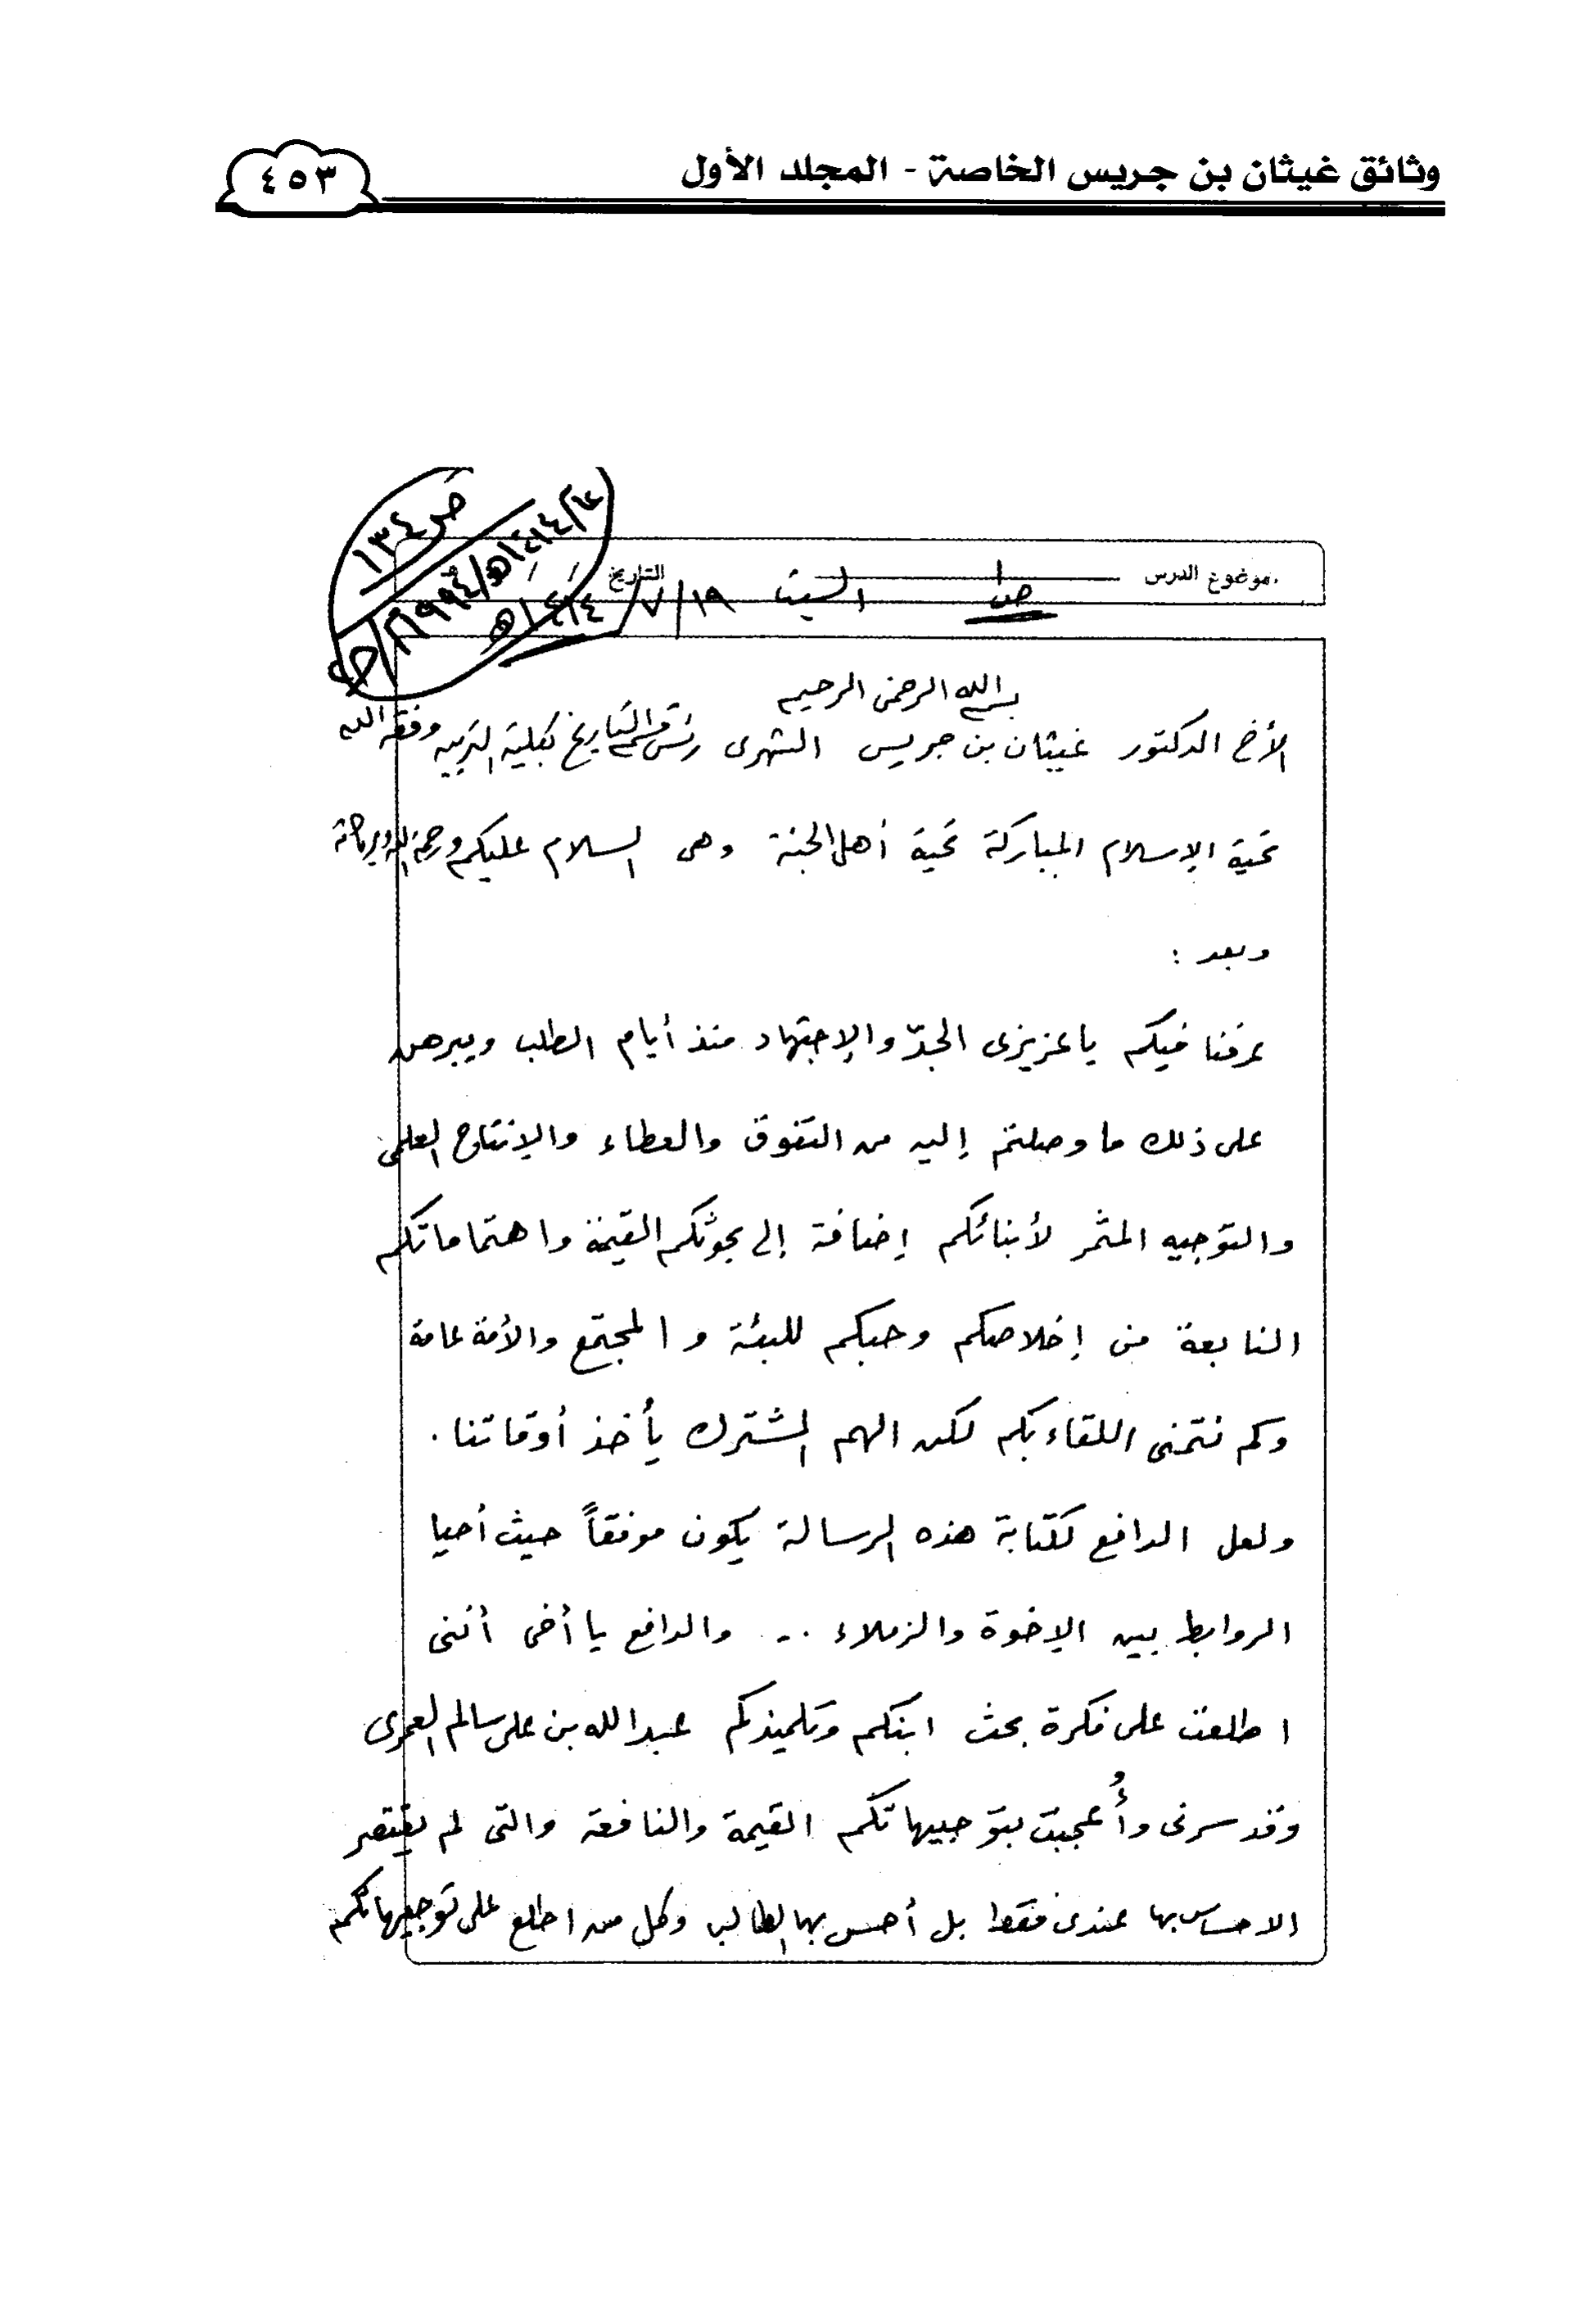 وثائق غيثان بن جريس الخاصة - المجلد الأول
٤٥٣
ص ١٣٤
١٤١٤هـ/١٩٩٤م
موضوع الدرس
السبت
التاريخ ١٩/٧/١٤١٤هـ
بسم الله الرحمن الرحيم
الأخ الدكتور غيثان بن جريس الشهرى رئيس قسم التاريخ بكلية التربيه وفقه الله
تحية الإسلام المباركة تحية أهل الجنة وهى السلام عليكم ورحمة الله وبركاته
وبعد :
عرفنا فيكم يا عزيزى الجدّ والإجتهاد منذ أيام الطلب ويبرهن
على ذلك ما وصلتم إليه من التفوق والعطاء والإنتاج العلمى
والتوجيه المثمر لأبنائكم إضافة إلى بحوثكم القيمة واهتماماتكم
النابعة من إخلاصكم وحبكم للبيئة والمجتمع والأمة عامة
وكم نتمنى اللقاء بكم لكن الهم المشترك يأخذ أوقاتنا .
ولعل الدافع لكتابة هذه الرسالة يكون موفقاً حيث أحيا
الروابط بين الإخوة والزملاء ... والدافع يا أخى أننى
اطلعت على فكرة بحث ابنكم وتلميذكم عبدالله بن على سالم العمرى
وقد سرنى وأُعجبت بتوجيهاتكم القيمة والنافعة والتى لم يقتصر
الاحساس بها عندى فقط بل أحس بها الطالب وكل من اطلع على توجيهاتكم